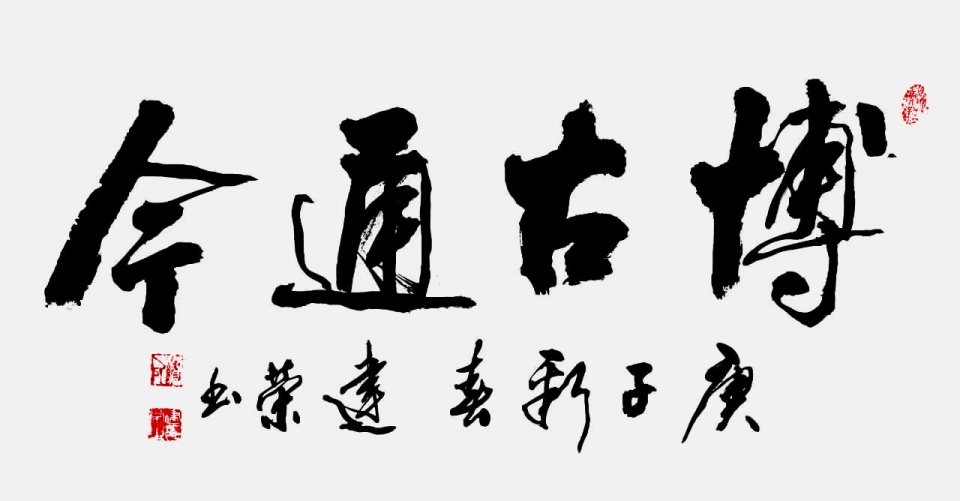 博古通今
庚子新春 建荣书